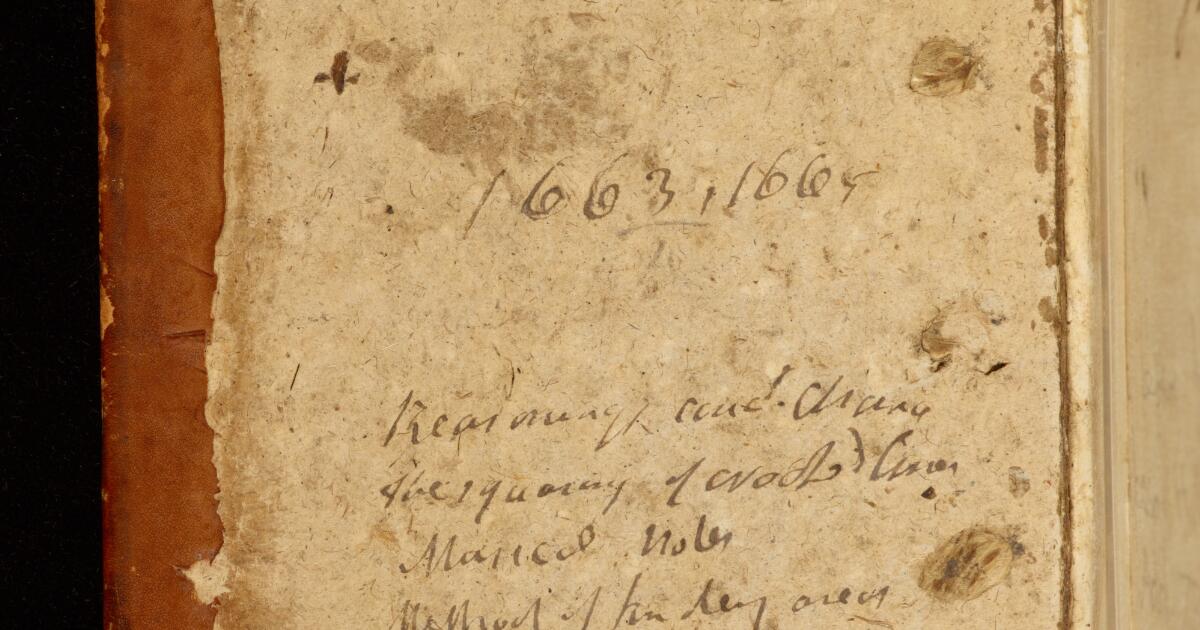 1663, 1664
Reasonings and
the squaring of crook'd lines
Musical Notes
Method of finding areas